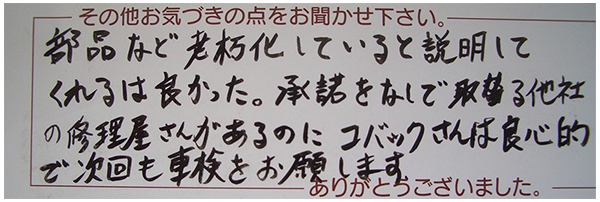 その他お気づきの点をお聞かせ下さい。
部品など老朽化していると説明して
くれるは良かった。承諾をなしで取替る他社
の修理屋さんがあるのに コバックさんは良心的
で次回も車検をお願します
ありがとうございました。